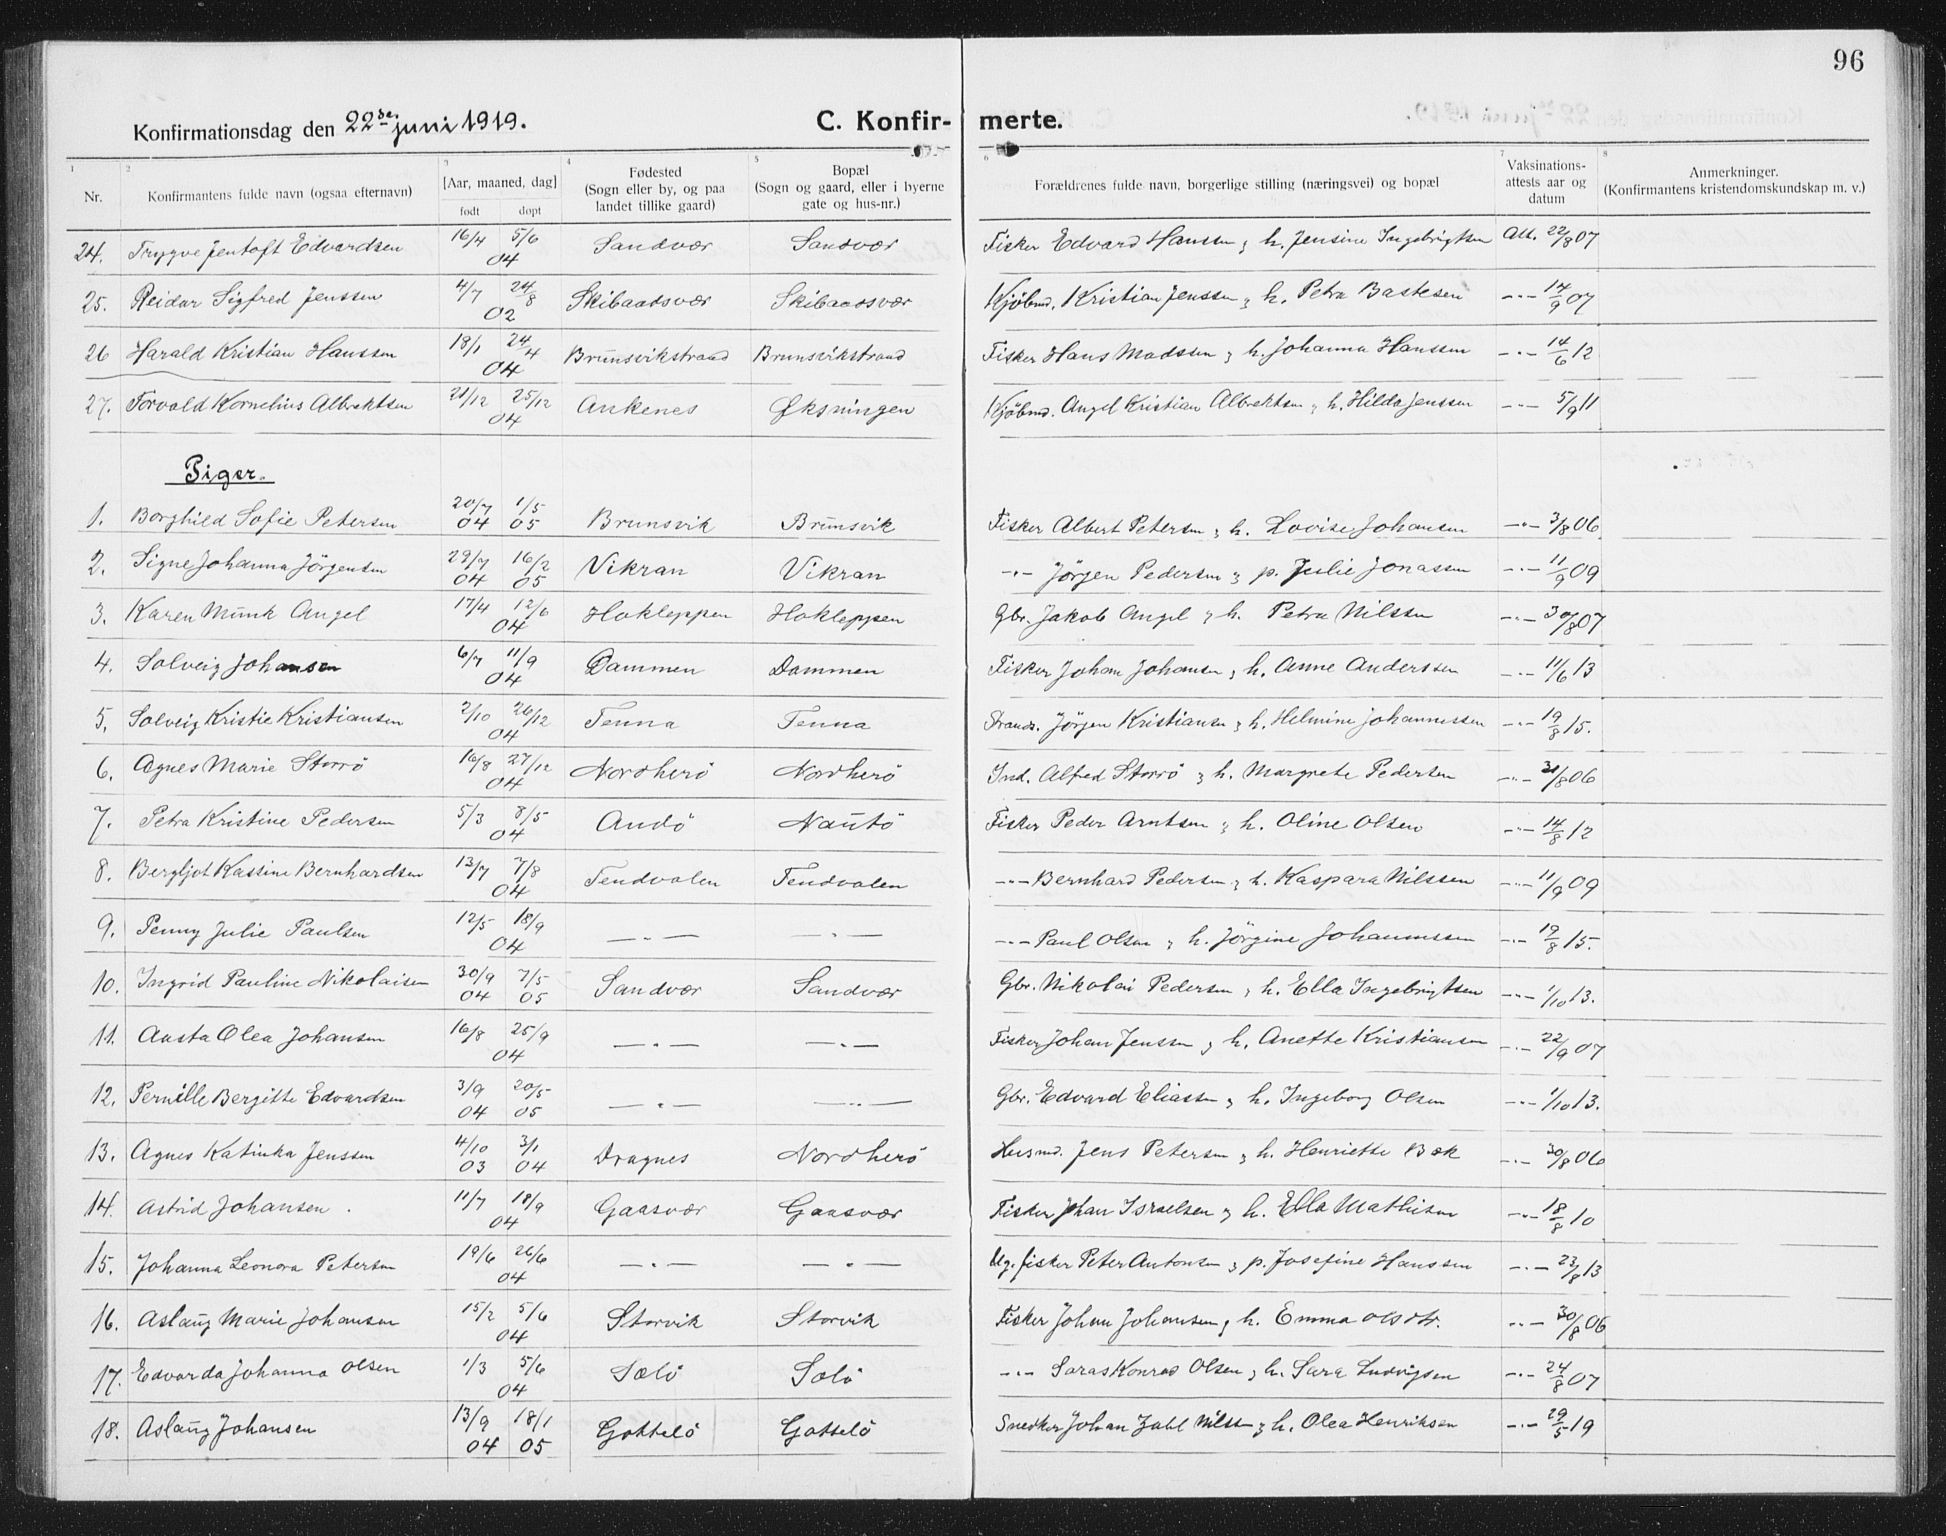 96
Konfirmationsdag den 22de juni 1919. C. Konfir- merte.
1 2 3 4 5 6 7 8
Nr. Konfirmantens fulde navn (ogsaa efternavn) [Aar, maaned, dag] født døpt Fødested (Sogn eller by, og paa landet tillike gaard) Bopæl (Sogn og gaard, eller i byerne gate og hus-nr.) Forældrenes fulde navn, borgerlige stilling (næringsvei) og bopæl Vaksinations-attests aar og datum Anmerkninger. (Konfirmantens kristendomskundskap m. v.)
24. Trygve Jentoft Edvardsen 16/4 5/6 04 Sandvær Sandvær Fisker Edvard Hanssen & h. Jensine Ingebrigtsen Att. 22/8 07
25. Reidar Sigfred Jenssen 4/7 24/8 02 Skibaadsvær Skibaadsvær Kjøbmd. Kristian Jenssen & h. Petra Bastesen -"- 14/9 07
26 Harald Kristian Hanssen 18/1 24/4 04 Brunsvikstrand Brunsvikstrand Fisker Hans Madssen & h. Johanna Hanssen -"- 14/6 12
27. Torvald Kornelius Albrektsen 21/12 25/12 04 Ankenes Øksningen Kjøbmd. Angel Kristian Albrektsen & h. Hilda Jenssen -"- 5/9 11
Piger.
1. Borghild Sofie Petersen 20/7 04 1/5 05 Brunsvik Brunsvik Fisker Albert Petersen & h. Lovise Johansen -"- 3/8 06
2. Signe Johanna Jörgensen 29/7 04 16/2 05 Vikran Vikran -"- Jörgen Pedersen & p. Julie Jonassen -"- 11/9 09
3. Karen Munk Angel 17/4 12/6 04 Hokleppen Hokleppen Gbr. Jakob Angel & h. Petra Nilssen -"- 30/8 07
4. Solveig Johansen 6/7 11/9 04 Dammen Dammen Fisker Johan Johansen & h. Anne Anderssen -"- 11/6 13
5. Solveig Kristie Kristiansen 2/10 26/12 04 Tenna Tenna Strands. Jörgen Kristiansen & h. Helmine Johannessen -"- 19/8 15.
6. Agnes Marie Storrö 16/8 27/12 04 Nordherö Nordherö Ind. Alfred Storrö & h. Margrete Pedersen -"- 31/8 06
7. Petra Kristine Pedersen 5/3 8/5 04 Andö Nautö Fisker Peder Arntsen & h. Oline Olsen -"- 14/8 12
8. Bergljot Kassine Bernhardsen 13/7 7/8 04 Tendvalen Tendvalen -"- Bernhard Pedersen & h. Kaspara Nilssen -"- 11/9 09
9. Penny Julie Paulsen 12/5 18/9 04 -"- -"- -"- Paul Olsen & h. Jörgine Johannessen -"- 19/8 15.
10. Ingrid Pauline Nikolaisen 30/9 04 7/5 05 Sandvær Sandvær Gbr. Nikolai Pedersen & h. Ella Ingebrigtsen -"- 1/10 13.
11. Aasta Olea Johansen 16/8 25/9 04 -"- -"- Fisker Johan Jenssen & h. Anette Kristiansen -"- 22/9 07
12. Pernille Bergitte Edvardsen 3/9 04 20/5 05 -"- -"- Gbr. Edvard Eliassen & h. Ingeborg Olsen -"- 1/10 13.
13. Agnes Katinka Jenssen 4/10 03 3/1 04 Dragnes Nordherö Husmd. Jens Petersen & h. Henriette Bek -"- 30/8 06
14. Astrid Johansen 11/7 18/9 04 Gaasvær Gaasvær Fisker Johan Israelsen & h. Ella Mathisen -"- 18/8 10
15. Johanna Leonora Petersen 19/6 26/6 04 -"- -"- Ug. fisker Peter Antonsen & p. Josefine Hanssen -"- 23/8 13
16. Aslaug Marie Johansen 15/2 5/6 04 Storvik Storvik Fisker Johan Johansen & h. Emma Olsdtr. -"- 30/8 06
17. Edvarda Johanna Olsen 1/3 5/6 04 Sölö Sölö -"- Saras Konrad Olsen & h. Sara Ludvigsen -"- 24/8 07
18. Aslaug Johansen 13/9 04 18/1 05 Gottelö Gottelö Snedker Johan Zahl Nilssen & h. Olea Henriksen -"- 29/5 19